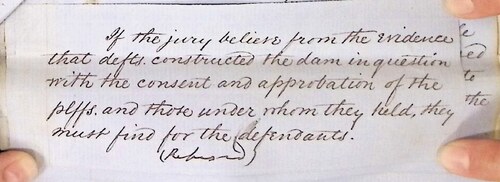 If the jury believe from the evidence
that defts. constructed the dam in question
with the consent and approbation of the
plffs. and those under whom they held, they
must find for the defendants.
(Refused)
the